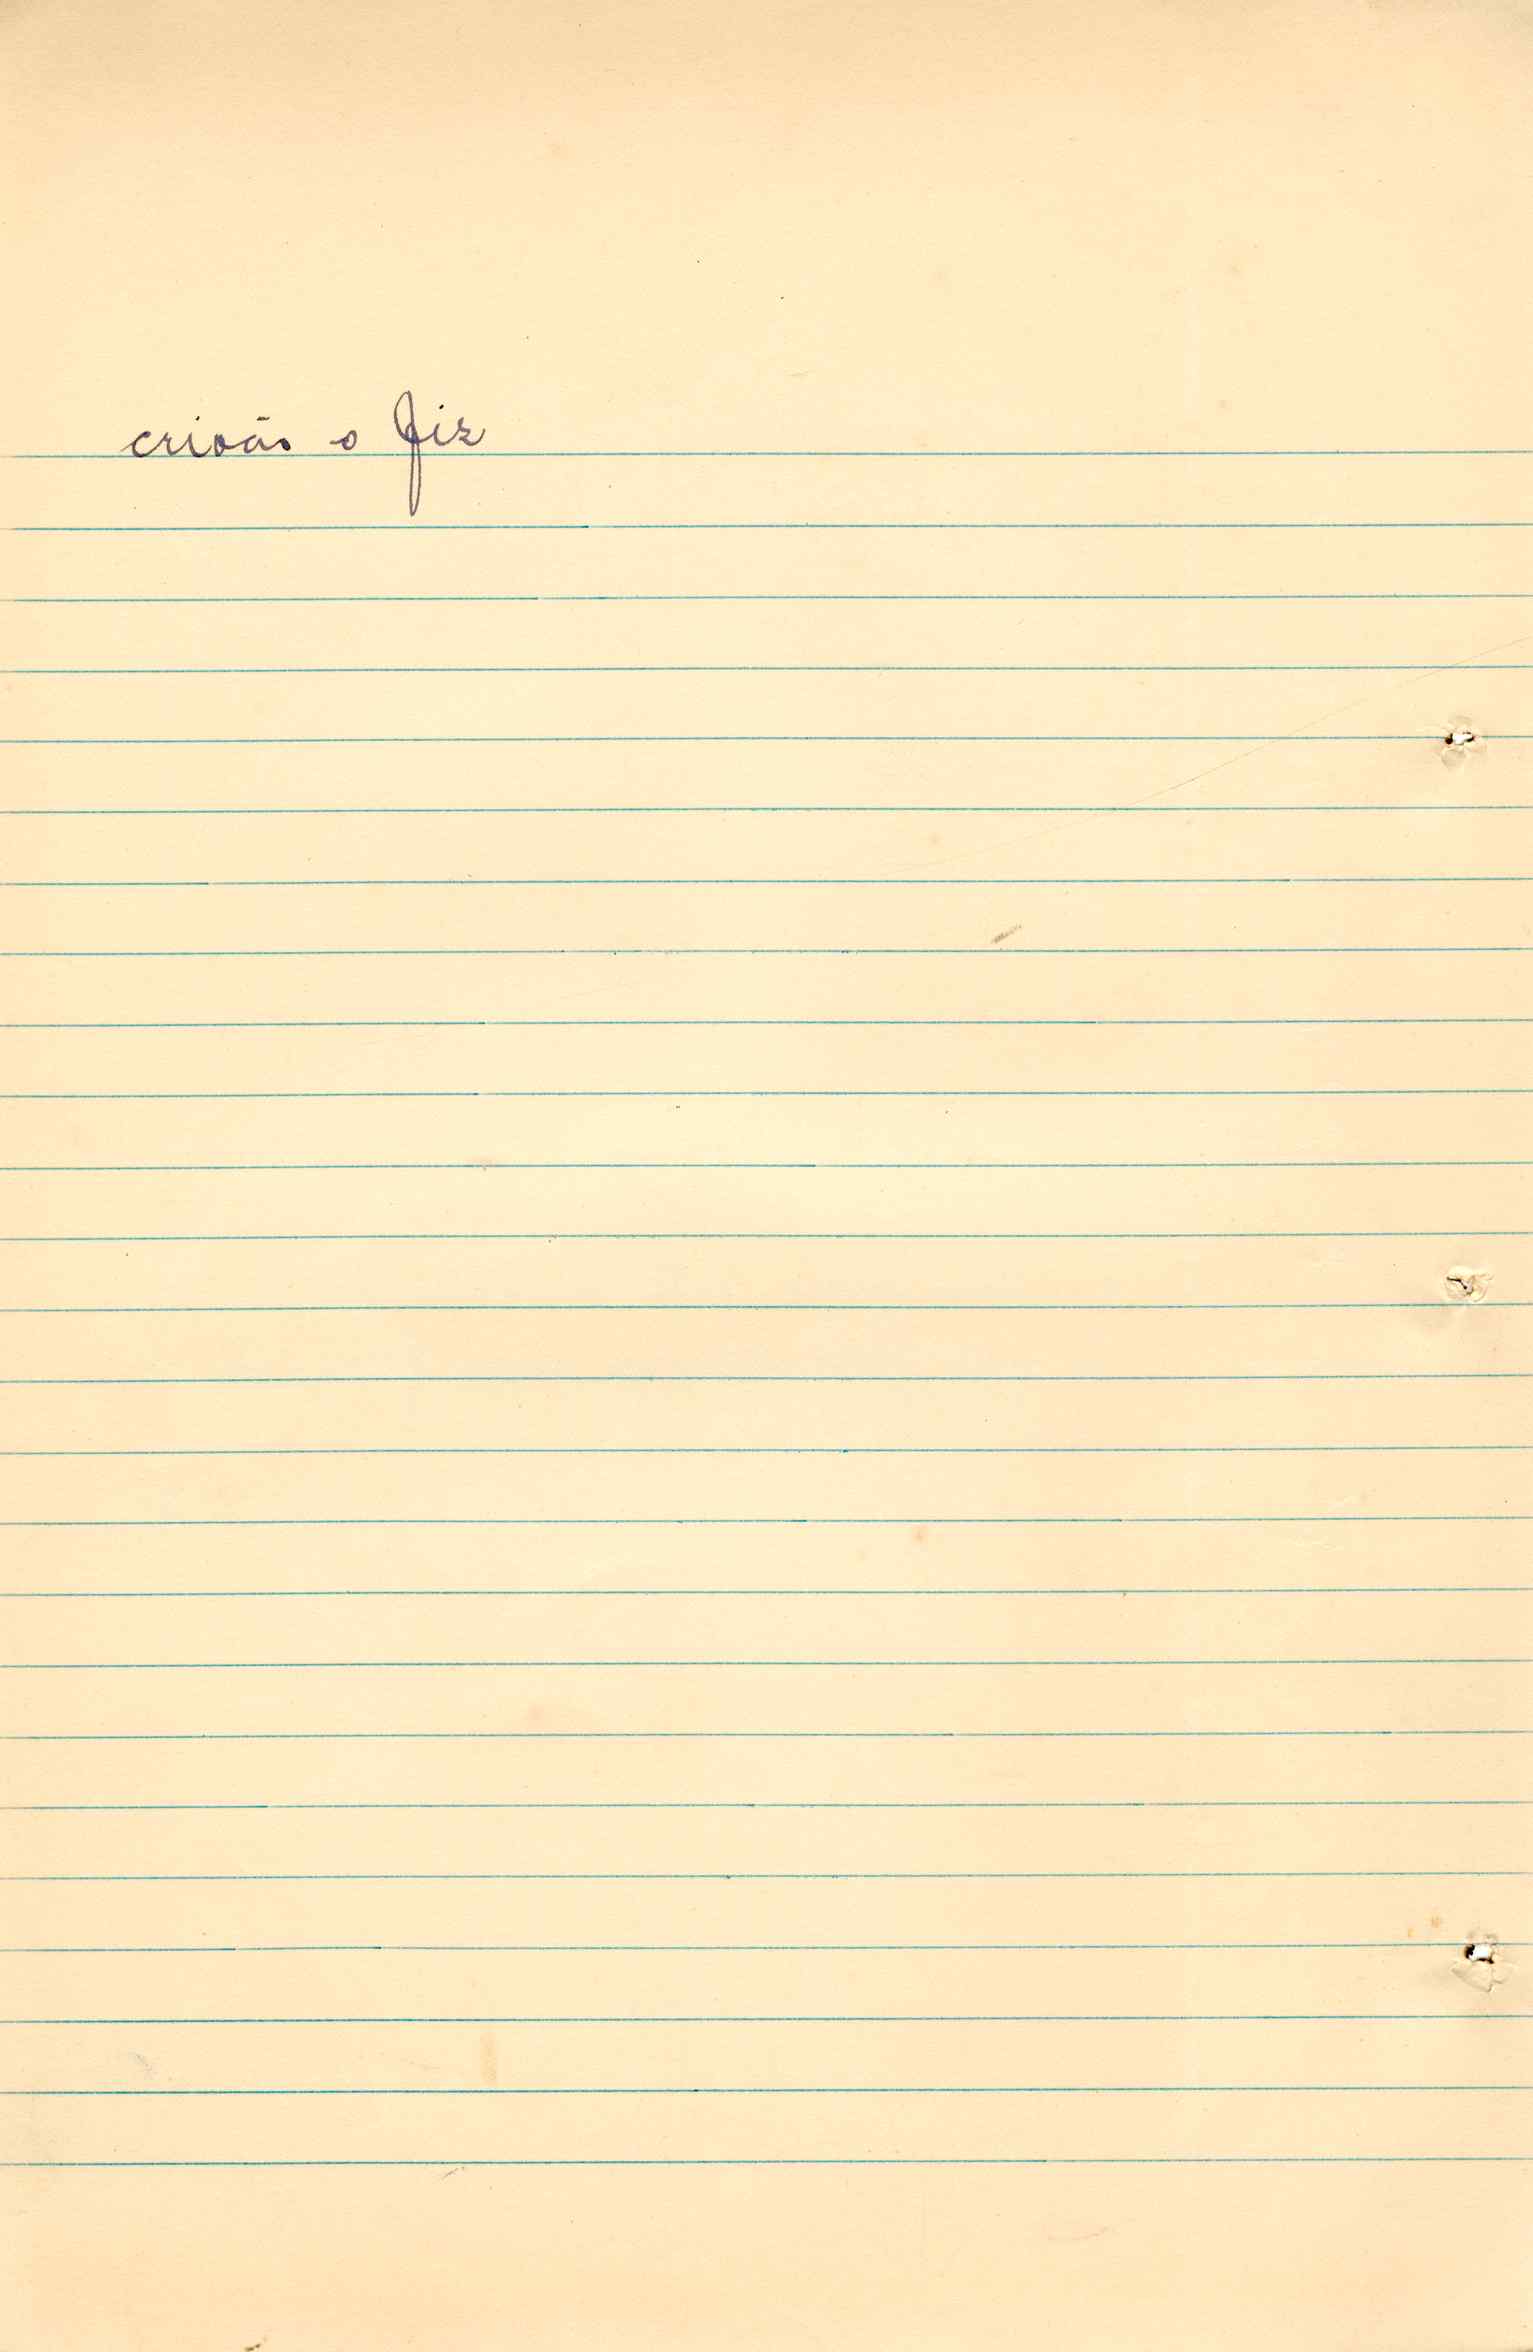 crivão o fiz